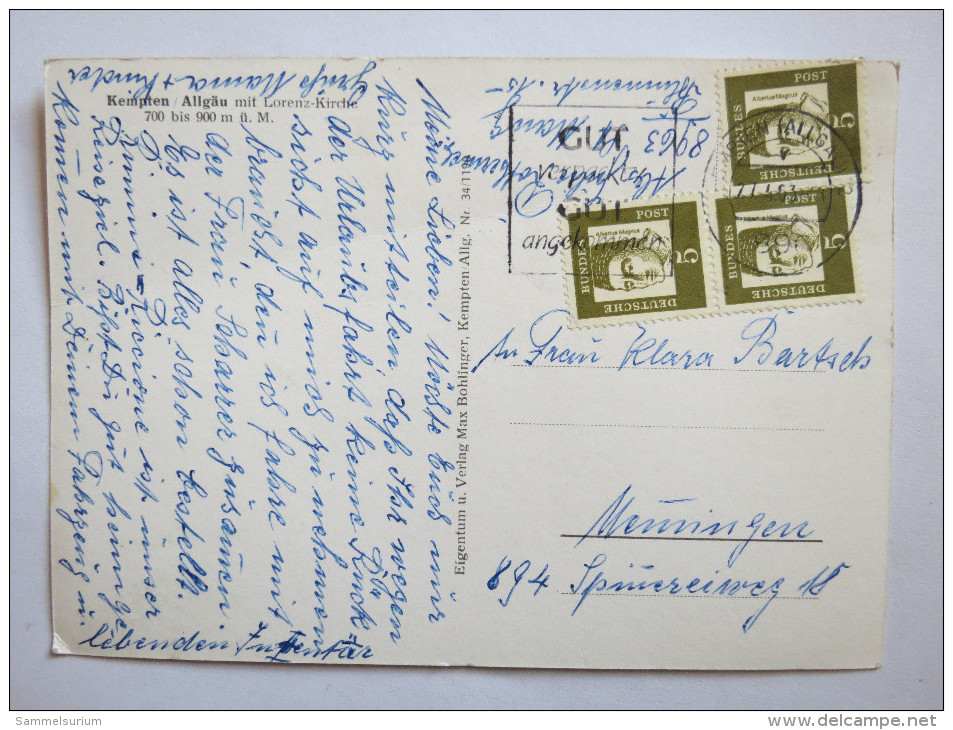 Kempten / Allgäu mit Lorenz-Kirche
700 bis 900 m ü. M.
Meine Lieben! Möchte Euch nur
kurz mitteilen, daß Ihr wegen
der Urlaubsfahrt keine Rück
sicht auf mich zu nehmen
braucht, denn ich fahre mit
der Frau Scharrer zusammen
Es ist alles schon bestellt.
Rimini-Riccione ist unser
Reiseziel. Bist Du gut heimge
kommen mit Deinem Fahrzeug u.
lebenden Inventar
Gruß Mama + Kinder
Eigentum u. Verlag Max Bohlinger, Kempten Allg. Nr. 34/11
8963
GUT
verpackt
GUT
angekommen
KEMPTEN (ALLGÄU)
DEUTSCHE BUNDESPOST
Albertus Magnus
5
DEUTSCHE BUNDESPOST
Albertus Magnus
5
DEUTSCHE BUNDESPOST
Albertus Magnus
5
An Frau Klara Bartsch
Memmingen
894 Spinnereiweg 18
Sammelsurium
http://www.delcampe.net